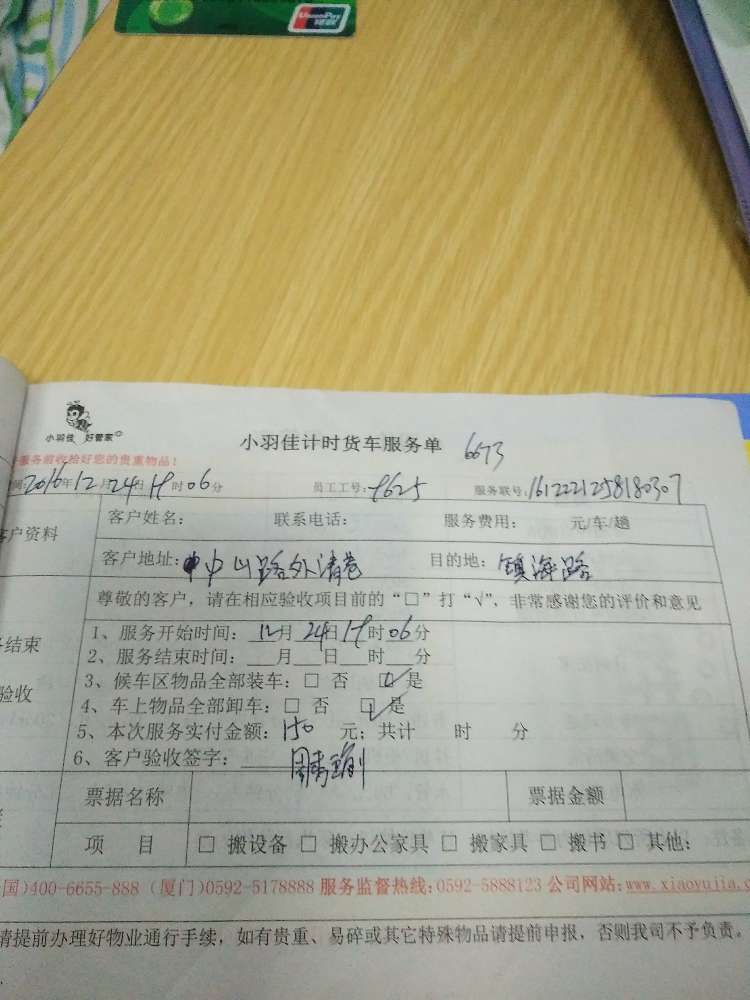 UnionPay
银联
小羽佳 好管家
小羽佳计时货车服务单 6673
服务前收拾好您的贵重物品!
间:2016年12月24日19时06分 员工工号: 服务联号:1612221258180307
客户资料
客户姓名: 联系电话: 服务费用: 元/车/趟
客户地址:中山路外清巷 目的地:镇海路
尊敬的客户，请在相应验收项目前的“□”打“√”，非常感谢您的评价和意见
结束
验收
1、服务开始时间:12月24日19时06分
2、服务结束时间:___月___日___时___分
3、候车区物品全部装车:□ 否 ☑ 是
4、车上物品全部卸车:□ 否 ☑ 是
5、本次服务实付金额:150 元；共计 时 分
6、客户验收签字:
票据名称 票据金额
项 目 □ 搬设备 □ 搬办公家具 □ 搬家具 □ 搬书 □ 其他:
国)400-6655-888 (厦门)0592-5178888 服务监督热线:0592-5888123 公司网站:www.xiaoyujia.c
请提前办理好物业通行手续，如有贵重、易碎或其它特殊物品请提前申报，否则我司不予负责。